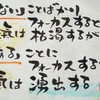 ないことばかり
フォーカスすると
気は枯渇するが
あることに
フォーカスすると
気は湧出する